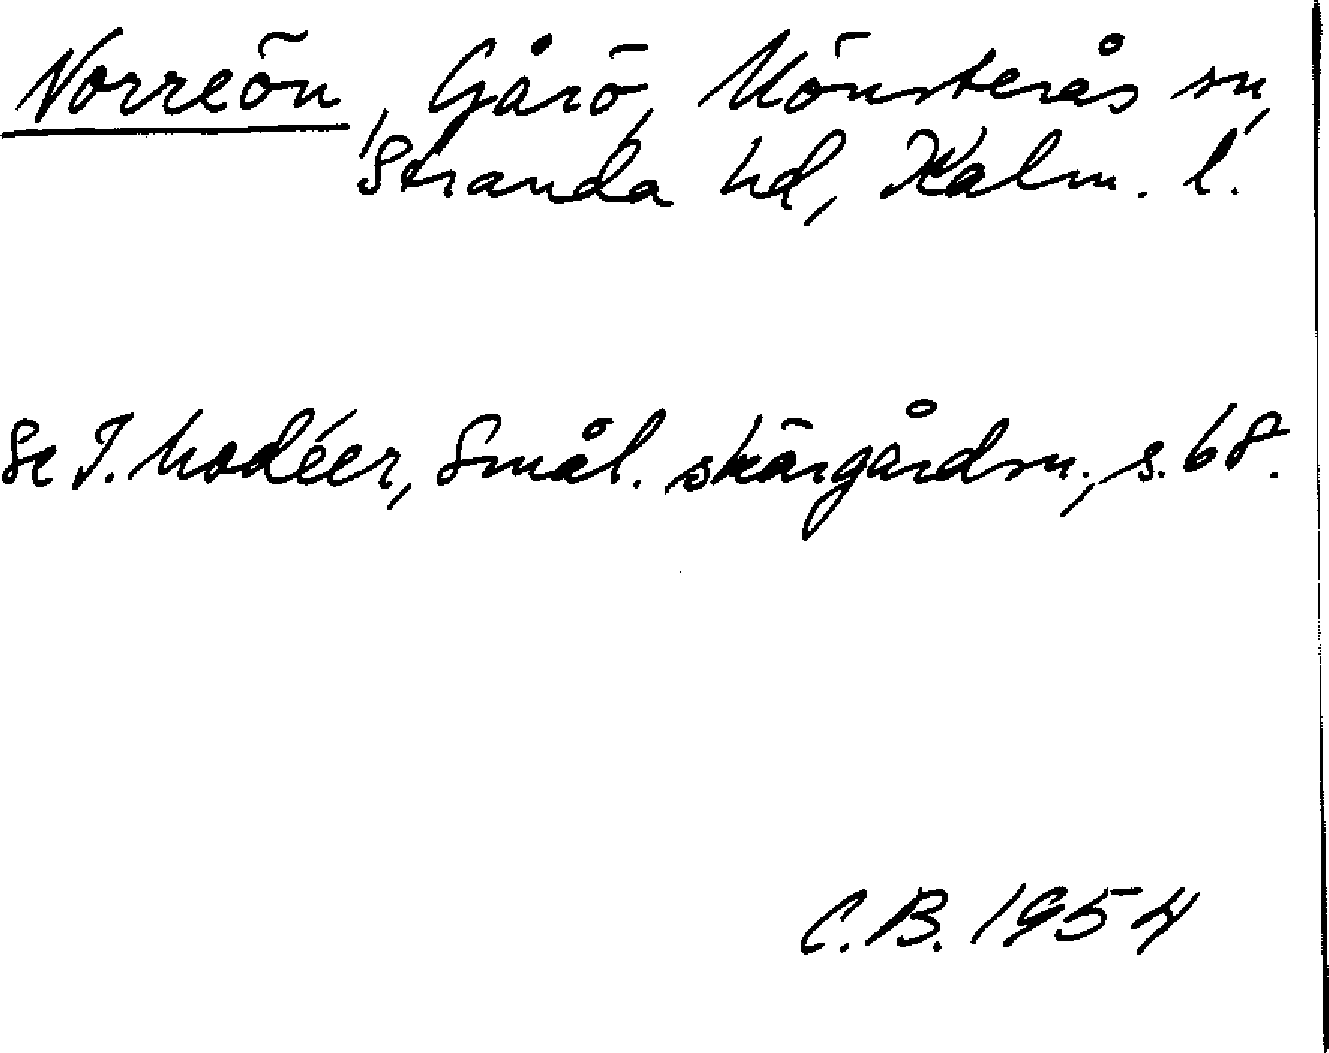 Norreön, Gårö, Mönsterås sn,
Stranda hd, Kalm. l.
Se I. Modéer, Smål. skärgårdsn., s. 68.
C.B. 1954